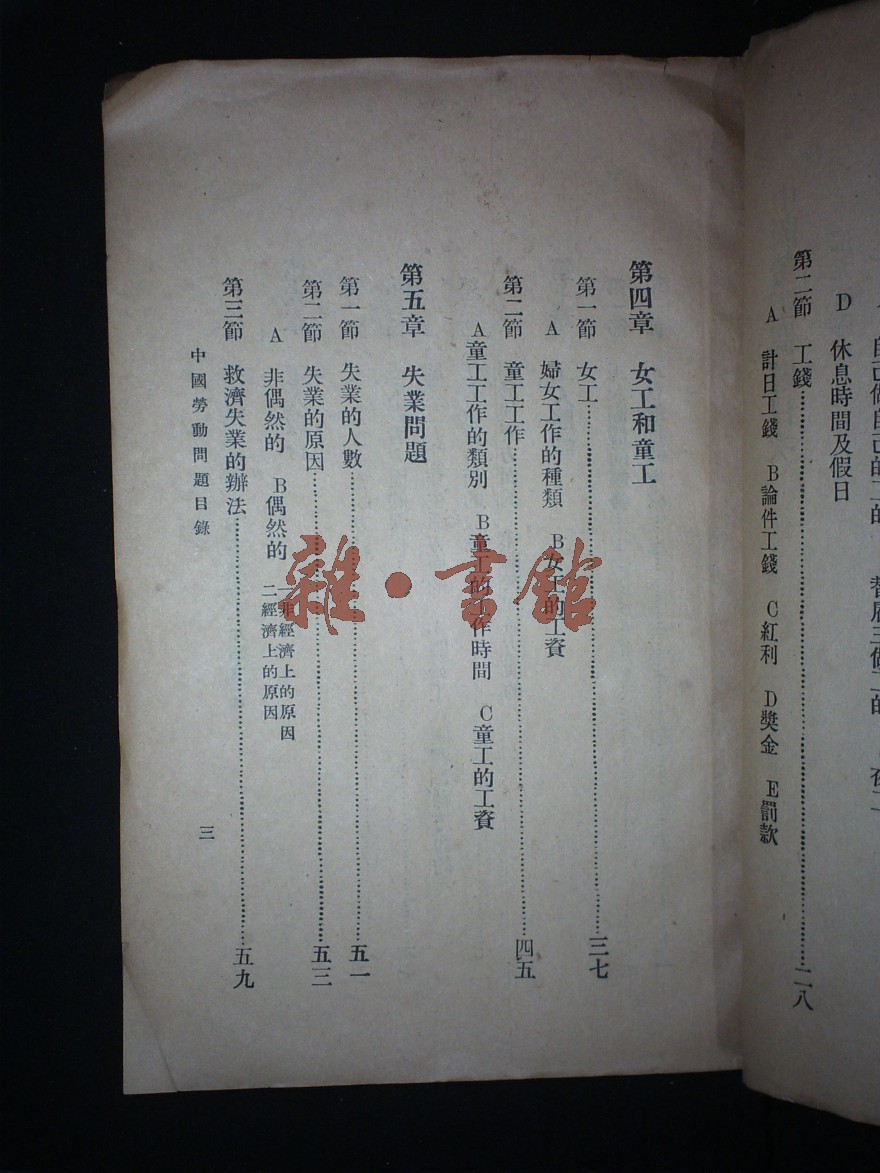 D 休息時間及假日
第二節 工錢……二八
A 計日工錢 B論件工錢 C紅利 D獎金 E罰款
第四章 女工和童工
第一節 女工……三七
A 婦女工作的種類 B女工的工資
第二節 童工工作……四五
A童工工作的類別 B童工的工作時間 C童工的工資
第五章 失業問題
第一節 失業的人數……五一
第二節 失業的原因……五三
A 非偶然的 B偶然的 一非經濟上的原因
二經濟上的原因
第三節 救濟失業的辦法……五九
中國勞動問題目錄 三
雜·書館